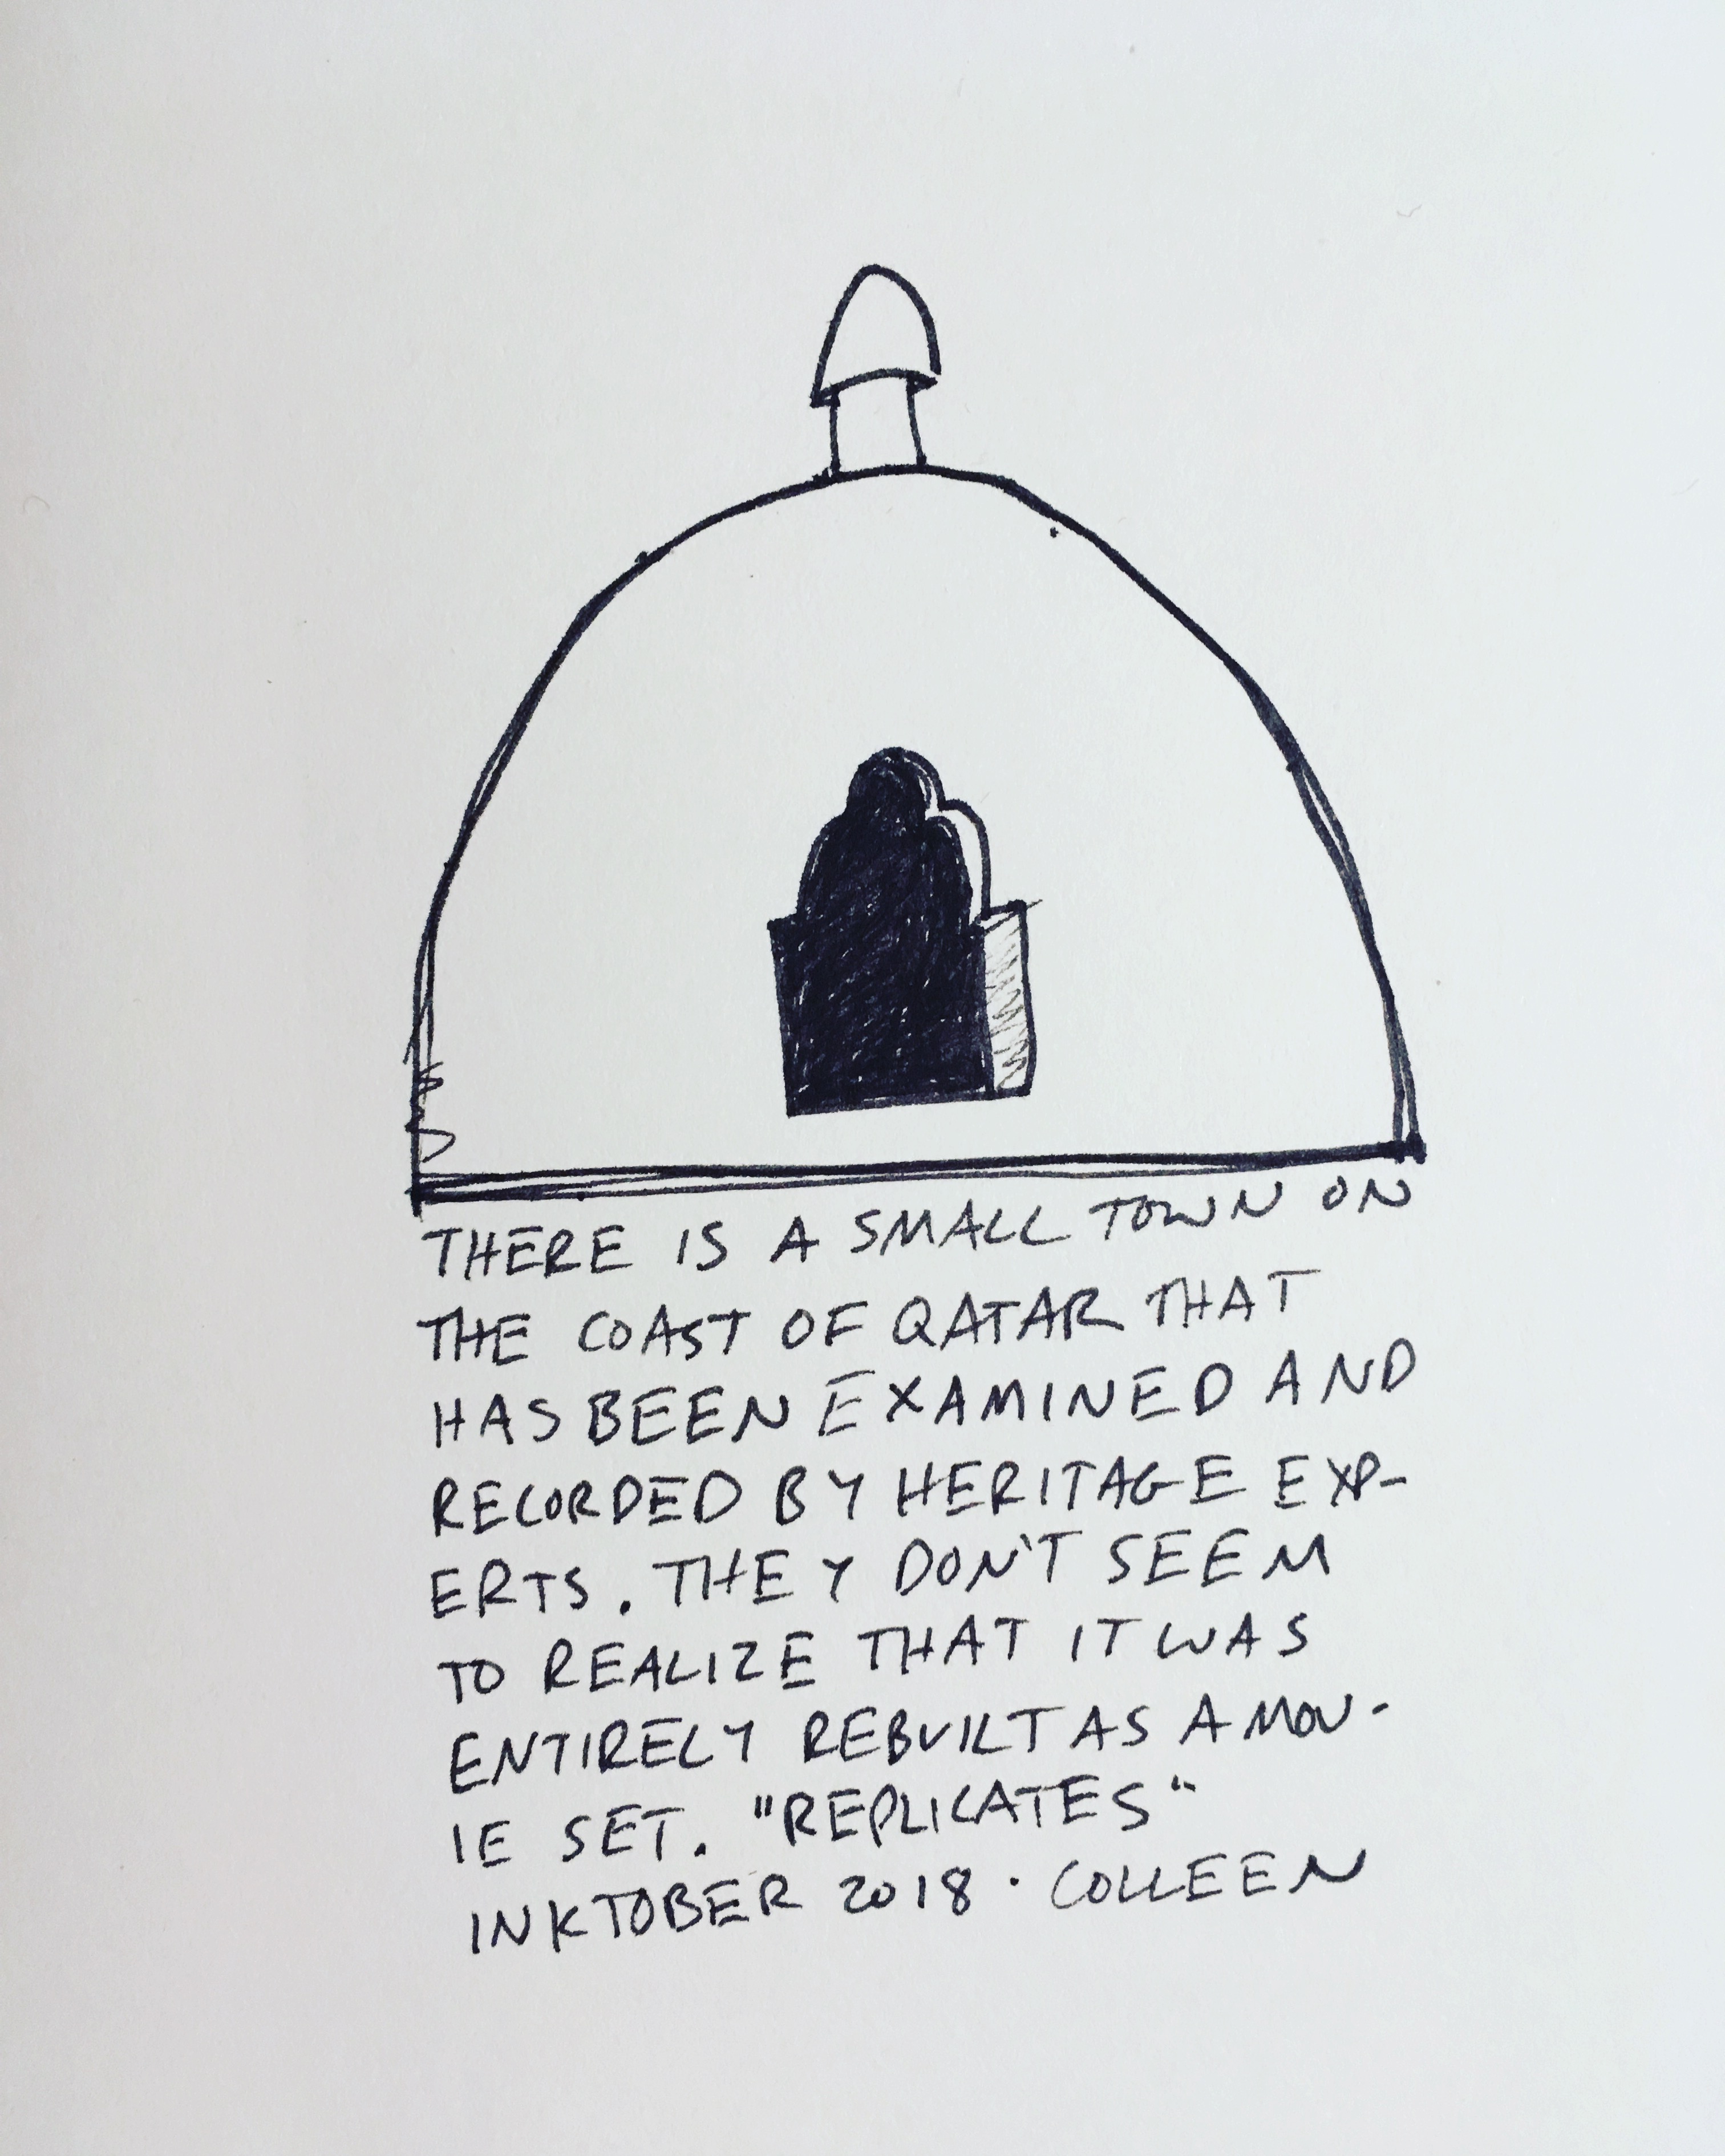 THERE IS A SMALL TOWN ON
THE COAST OF QATAR THAT
HAS BEEN EXAMINED AND
RECORDED BY HERITAGE EXP-
ERTS. THEY DON'T SEEM
TO REALIZE THAT IT WAS
ENTIRELY REBUILT AS A MOV-
IE SET. "REPLICATES"
INKTOBER 2018 · COLLEEN